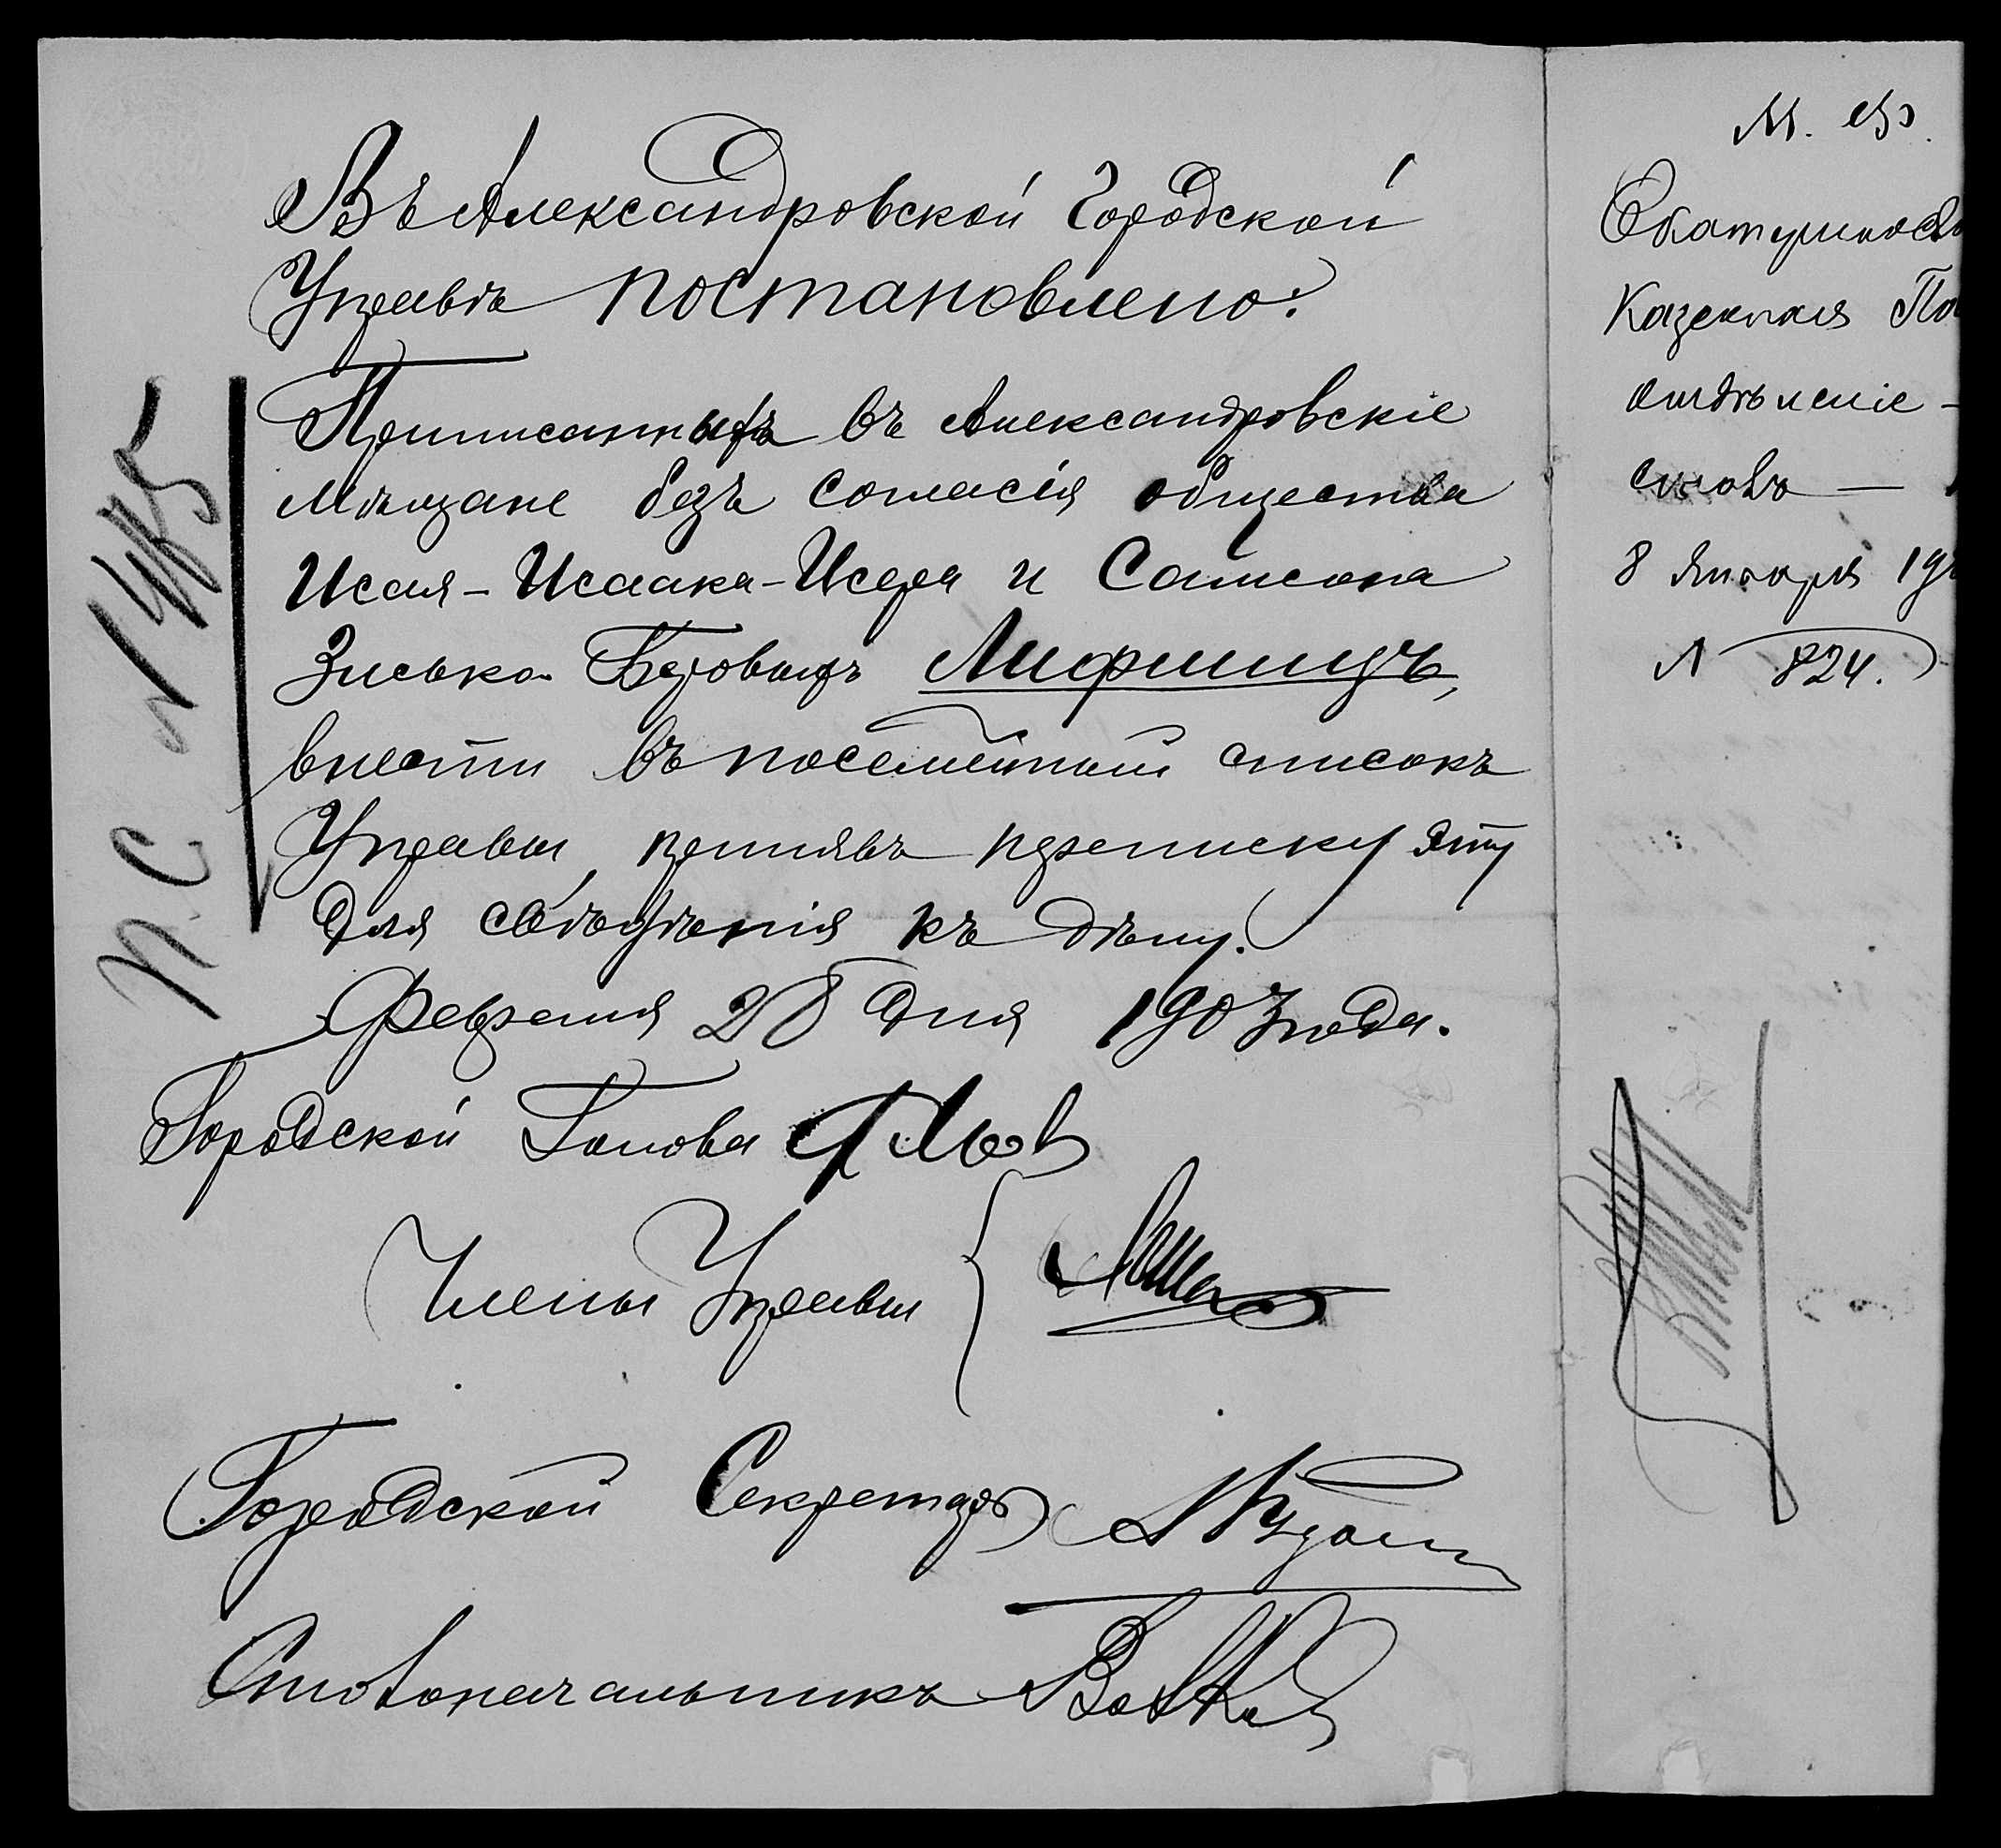 Въ Александровской Городской
Управѣ постановлено:
Приписанныхъ въ Александровскіе
мѣщане безъ согласія общества
Исая-Исаака-Исера и Самсона
Зиська Беровыхъ Лифшицъ,
внести въ посемейный списокъ
Управы, принявъ переписку эту
для свѣдѣнія къ дѣлу.
Февраля 28 дня 1903 года.
Городской Голова
Члены Управы
Городской Секретарь
Столоначальникъ
П. С. №
М. Ф.
Екатеринос
Казенная Па
отдѣленіе —
столъ —
8 Января 19
№ 824.